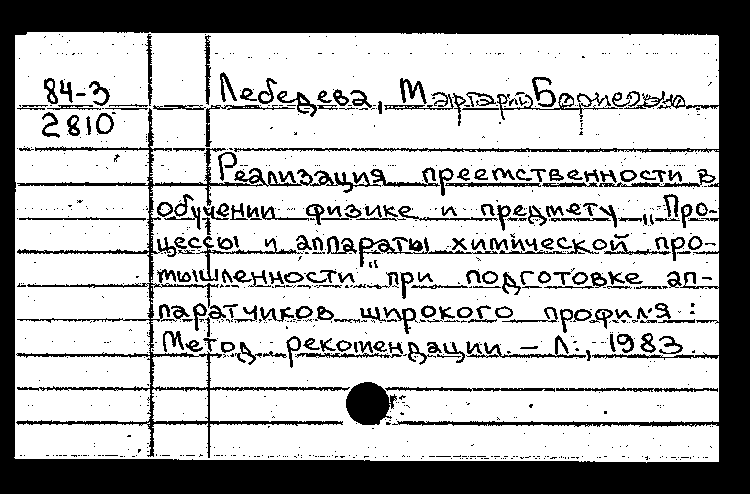 84-3
2810
Лебедева, Маргарита Борисовна
Реализация преемственности в
обучении физике и предмету „Про-
цессы и аппараты химической про-
мышленности" при подготовке ап-
паратчиков широкого профиля:
Метод. рекомендации. – Л., 1983.